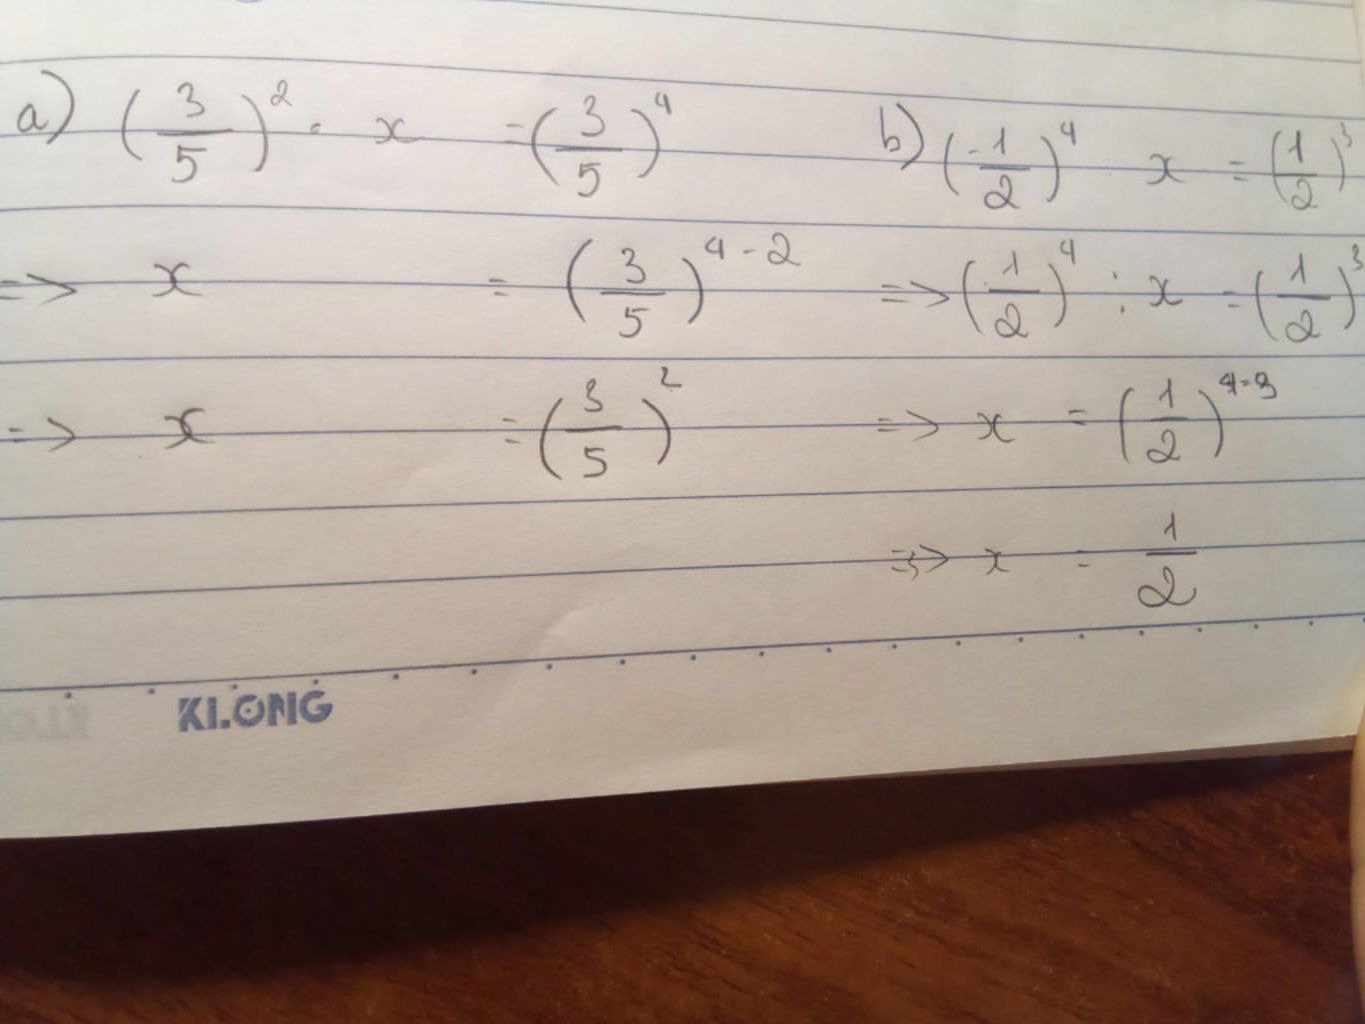 a) (3/5)^2 . x = (3/5)^4
=> x = (3/5)^{4-2}
=> x = (3/5)^2
b) (-1/2)^4 x = (1/2)^3
=> (1/2)^4 : x = (1/2)^3
=> x = (1/2)^{4-3}
=> x = 1/2
KLONG